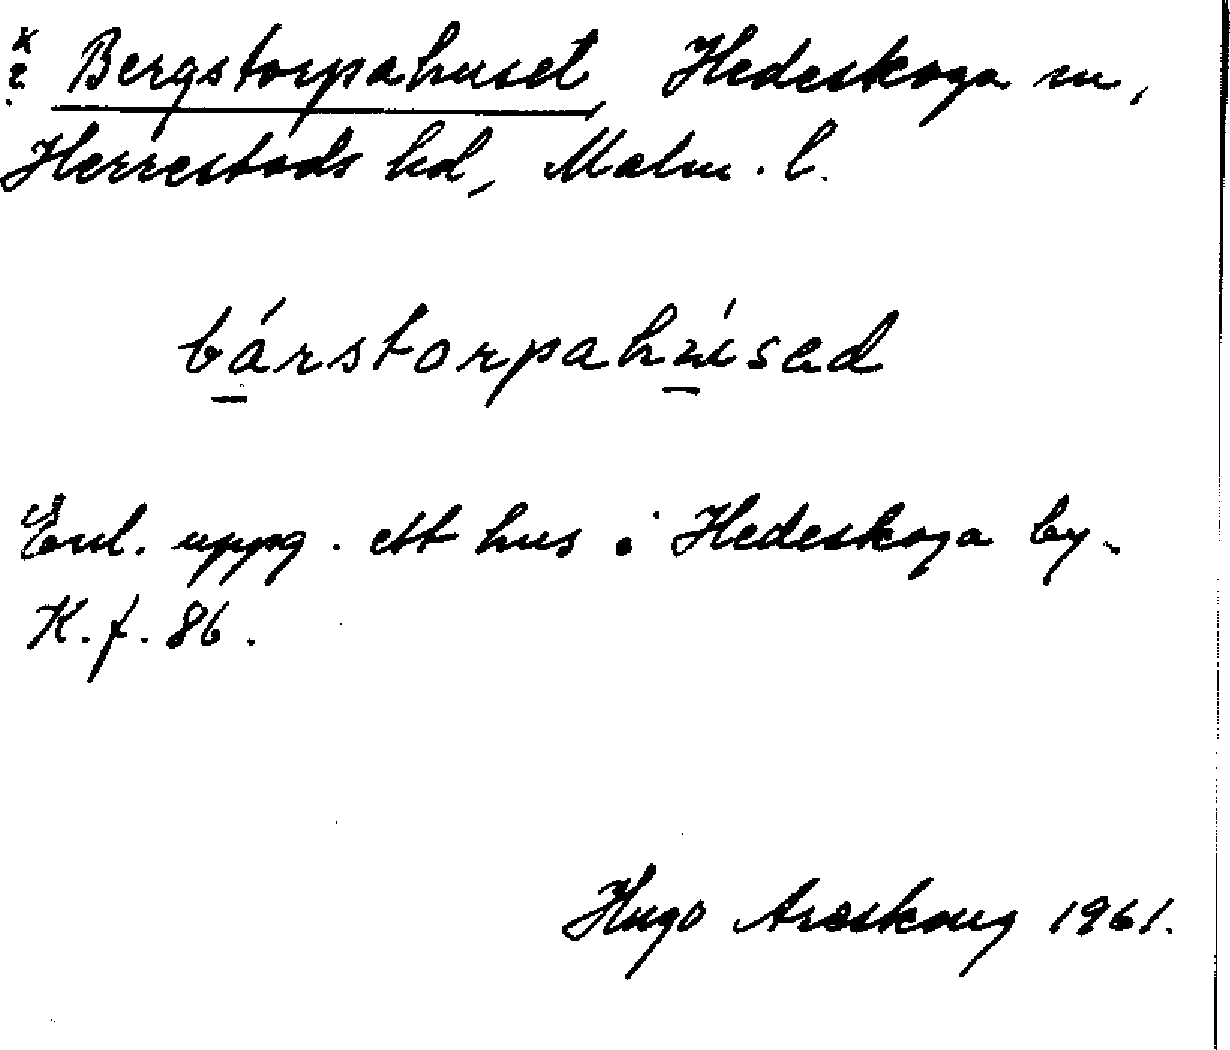 Bergstorpahuset, Hedeskoga sn,
Herrestads hd, Malm. l.
bárstorpahúsad
Enl. uppg. ett hus i Hedeskoga by.
K. f. 86.
Hugo Areskoug 1961.